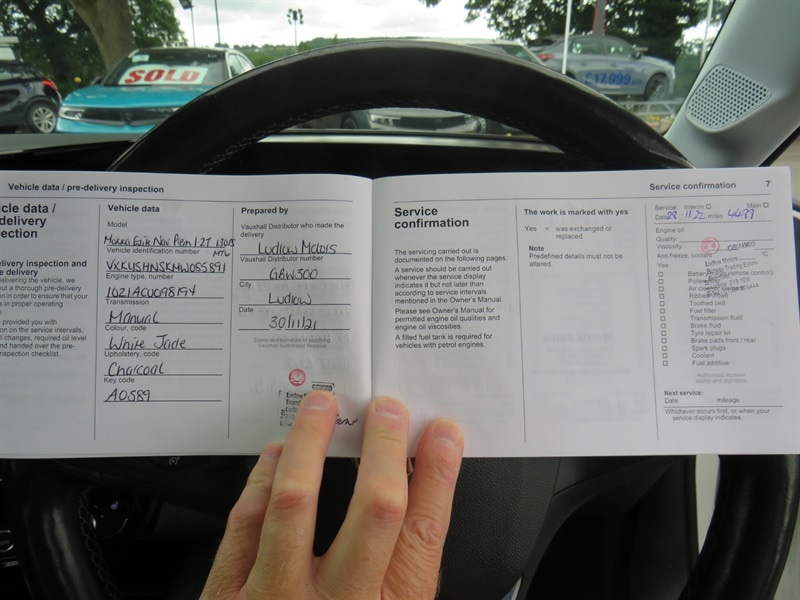 SOLD
£17,999
Vehicle data / pre-delivery inspection
cle data /
delivery
ection
delivery inspection and
e delivery
delivering the vehicle, we
out a thorough pre-delivery
n in order to ensure that your
s in proper operating
n.
provided you with
on on the service intervals,
l changes, required oil level
and handed over the pre-
inspection checklist.
Vehicle data
Model
Mokka Elite Nav Prem 1.2T 130PS
MTG
Vehicle identification number
VXKUSHNSKMW055891
Engine type, number
1021ACU098194
Transmission
Manual
Colour, code
White Jade
Upholstery, code
Charcoal
Key code
A0589
Prepared by
Vauxhall Distributor who made the
delivery
Ludlow Motors
Vauxhall Distributor number
GBW500
City
Ludlow
Date:
30/11/21
Stamp and signature of supplying
Vauxhall Authorised Repairer
Service confirmation 7
Service
confirmation
The servicing carried out is
documented on the following pages.
A service should be carried out
whenever the service display
indicates it but not later than
according to service intervals
mentioned in the Owner's Manual.
Please see Owner's Manual for
permitted engine oil qualities and
engine oil viscosities.
A filled fuel tank is required for
vehicles with petrol engines.
The work is marked with yes
Yes = was exchanged or
replaced
Note
Predefined details must not be
altered.
Service: Interim Main
Date 28-11-22 miles 4437
Engine oil
Quality:
Viscosity:
Anti-freeze, coolant °C
Yes
Ribbed V-belt
Toothed belt
Fuel filter
Transmission fluid
Brake fluid
Tyre repair kit
Brake pads front / rear
Spark plugs
Coolant
Fuel additive
Authorised repairer
stamp and signature
Next service:
Date mileage
Whichever occurs first, or when your
service display indicates.